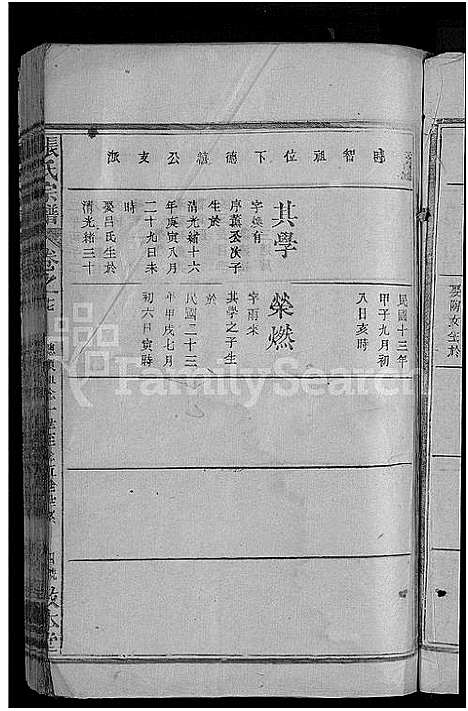 時智祖位下德縝公支派
其學
字煥有
序薰丞次子
生於
清光緒十六
年庚寅八月
二十九日未
時
娶呂氏生於
清光緒三十
民國十三年
甲子九月初
八日亥時
榮燃
字雨來
其學之子生
於
民國二十三
年甲戌七月
初六日寅時
張氏宗譜
卷之
敦本堂
娶陶女生於
FamilySearch